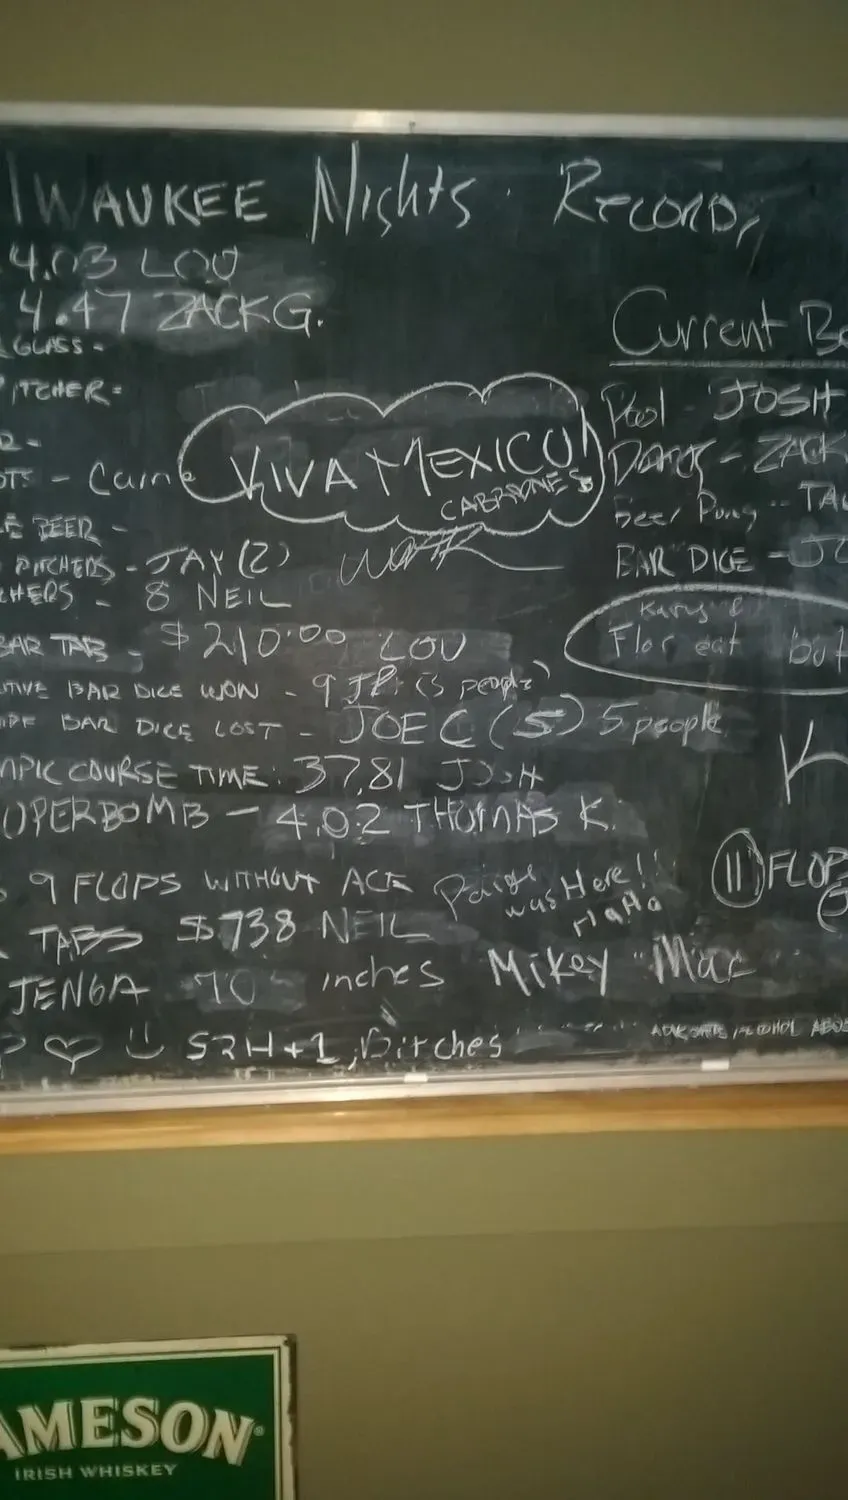 WAUKEE Nights Record,
4.03 LOU
4.47 ZACKG.
GLASS -
ITCHER -
VIVA MEXICO!
CABRONES
E BEER -
PITCHERS - JAY (2)
CHERS - 8 NEIL
BAR TAB - $210.00 LOU
TIVE BAR DICE WON - 9
BAR DICE LOST - JOE C (5) 5 people
MPIC COURSE TIME: 37.81 JOSH
UPERBOMB - 4.02 THOMAS K.
9 FLOPS WITHOUT ACE
Paige was Here!!
HaHa
TABS $738 NEIL
JENGA 70 inches
Mikey "Mac
SRH+1, Bitches
Current Be
Pool - JOSH
Darts - ZACK
Beer Pong -- TA
BAR DICE - JO
Flor eat but
K
11 FLOPS
ALCOHOL ABUS
JAMESON
IRISH WHISKEY